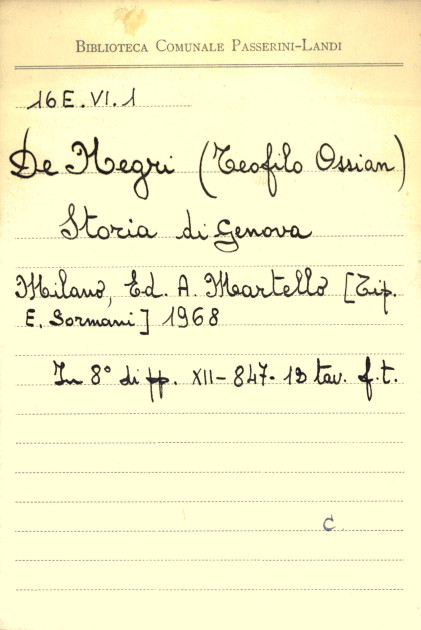 BIBLIOTECA COMUNALE PASSERINI-LANDI
16 E. VI. 1
De Negri (Teofilo Ossian)
Storia di Genova
Milano, Ed. A. Martello [Tip.
E. Sormani] 1968
In 8° di pp. XII-847-13 tav. f.t.
C